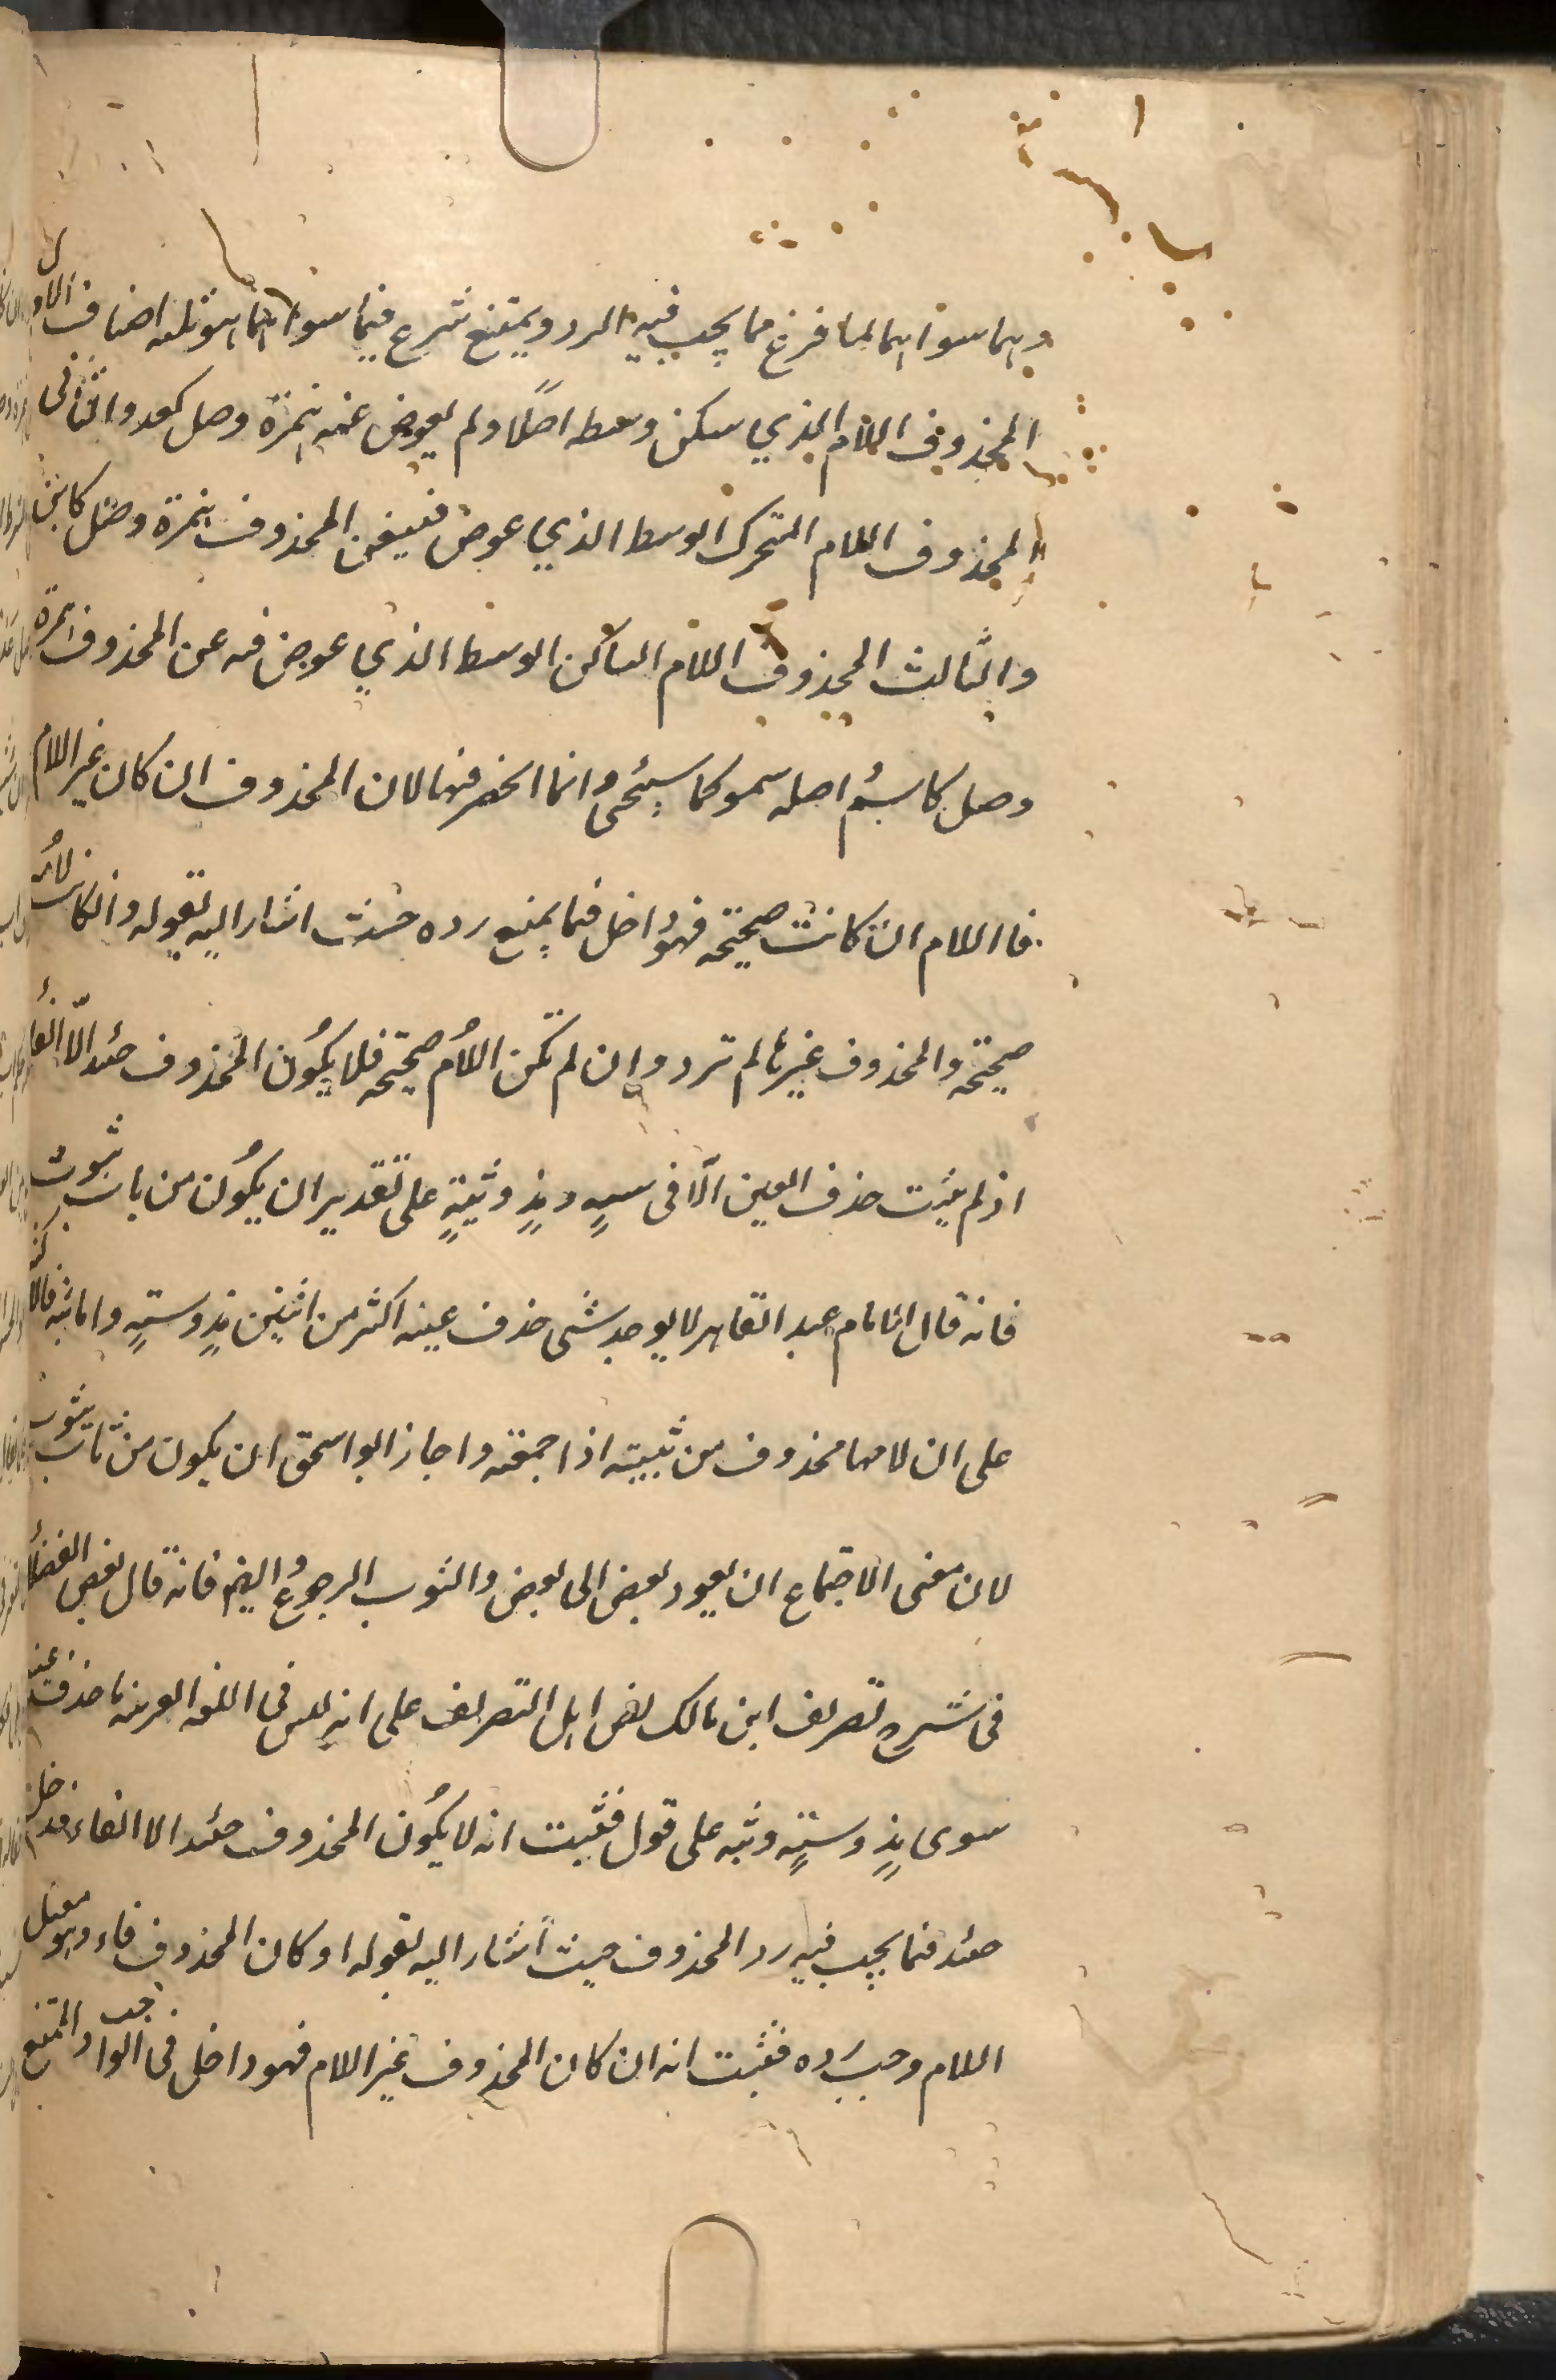 وبما سواهما لما فرغ مما يجب فيه الرد ويمتنع شرع فيما سواهما هو ثلثه اصناف الاول
المحذوف اللام الذي سكن وسطه اصلا ولم يعوض عنه همزة وصل كغد والثانى
المحذوف اللام المتحرك الوسط الذي عوض فيه عن المحذوف همزة وصل كابن
والثالث المحذوف اللام الساكن الوسط الذي عوض فيه عن المحذوف همزة
وصل كاسم اصله سمو كما سيجئ وانما انحصر فيها لان المحذوف ان كان غير اللام
فا اللام ان كانت صحيحة فهو داخل فيما يمنع رده حيث اشار اليه بقوله وان كانت لامه
صحيحة والمحذوف غيرها لم ترد وان لم تكن اللام صحيحة فلا يكون المحذوف حئد الا الفاء
اذ لم يثبت حذف العين الا فى سه ومذ وثبة على تقدير ان يكون من باب ثبوت
فانه قال الامام عبد القاهر لا يوجد شى حذف عينه اكثر من اثنين مذ وسته واما ثبه فالاكثر
على ان لامها محذوف من ثبيته اذا جمعته واجاز ابو اسحق ان يكون من ثاب يثوب
لان معنى الاجتماع ان يعود بعض الى بعض والثوب الرجوع وايضا فانه قال بعض الفضلاء
فى شرح تصريف ابن مالك نص اهل التصريف على انه ليس فى اللغه العربيه ما حذف عينه
سوى مذ وسته وثبه على قول فثبت انه لا يكون المحذوف حئد الا الفاء فدخل
حئد فيما يجب فيه رد المحذوف حيث اشار اليه بقوله او كان المحذوف فاء وهو معتل
اللام وجب رده فثبت انه ان كان المحذوف غير اللام فهو داخل فى الواجب والممتنع